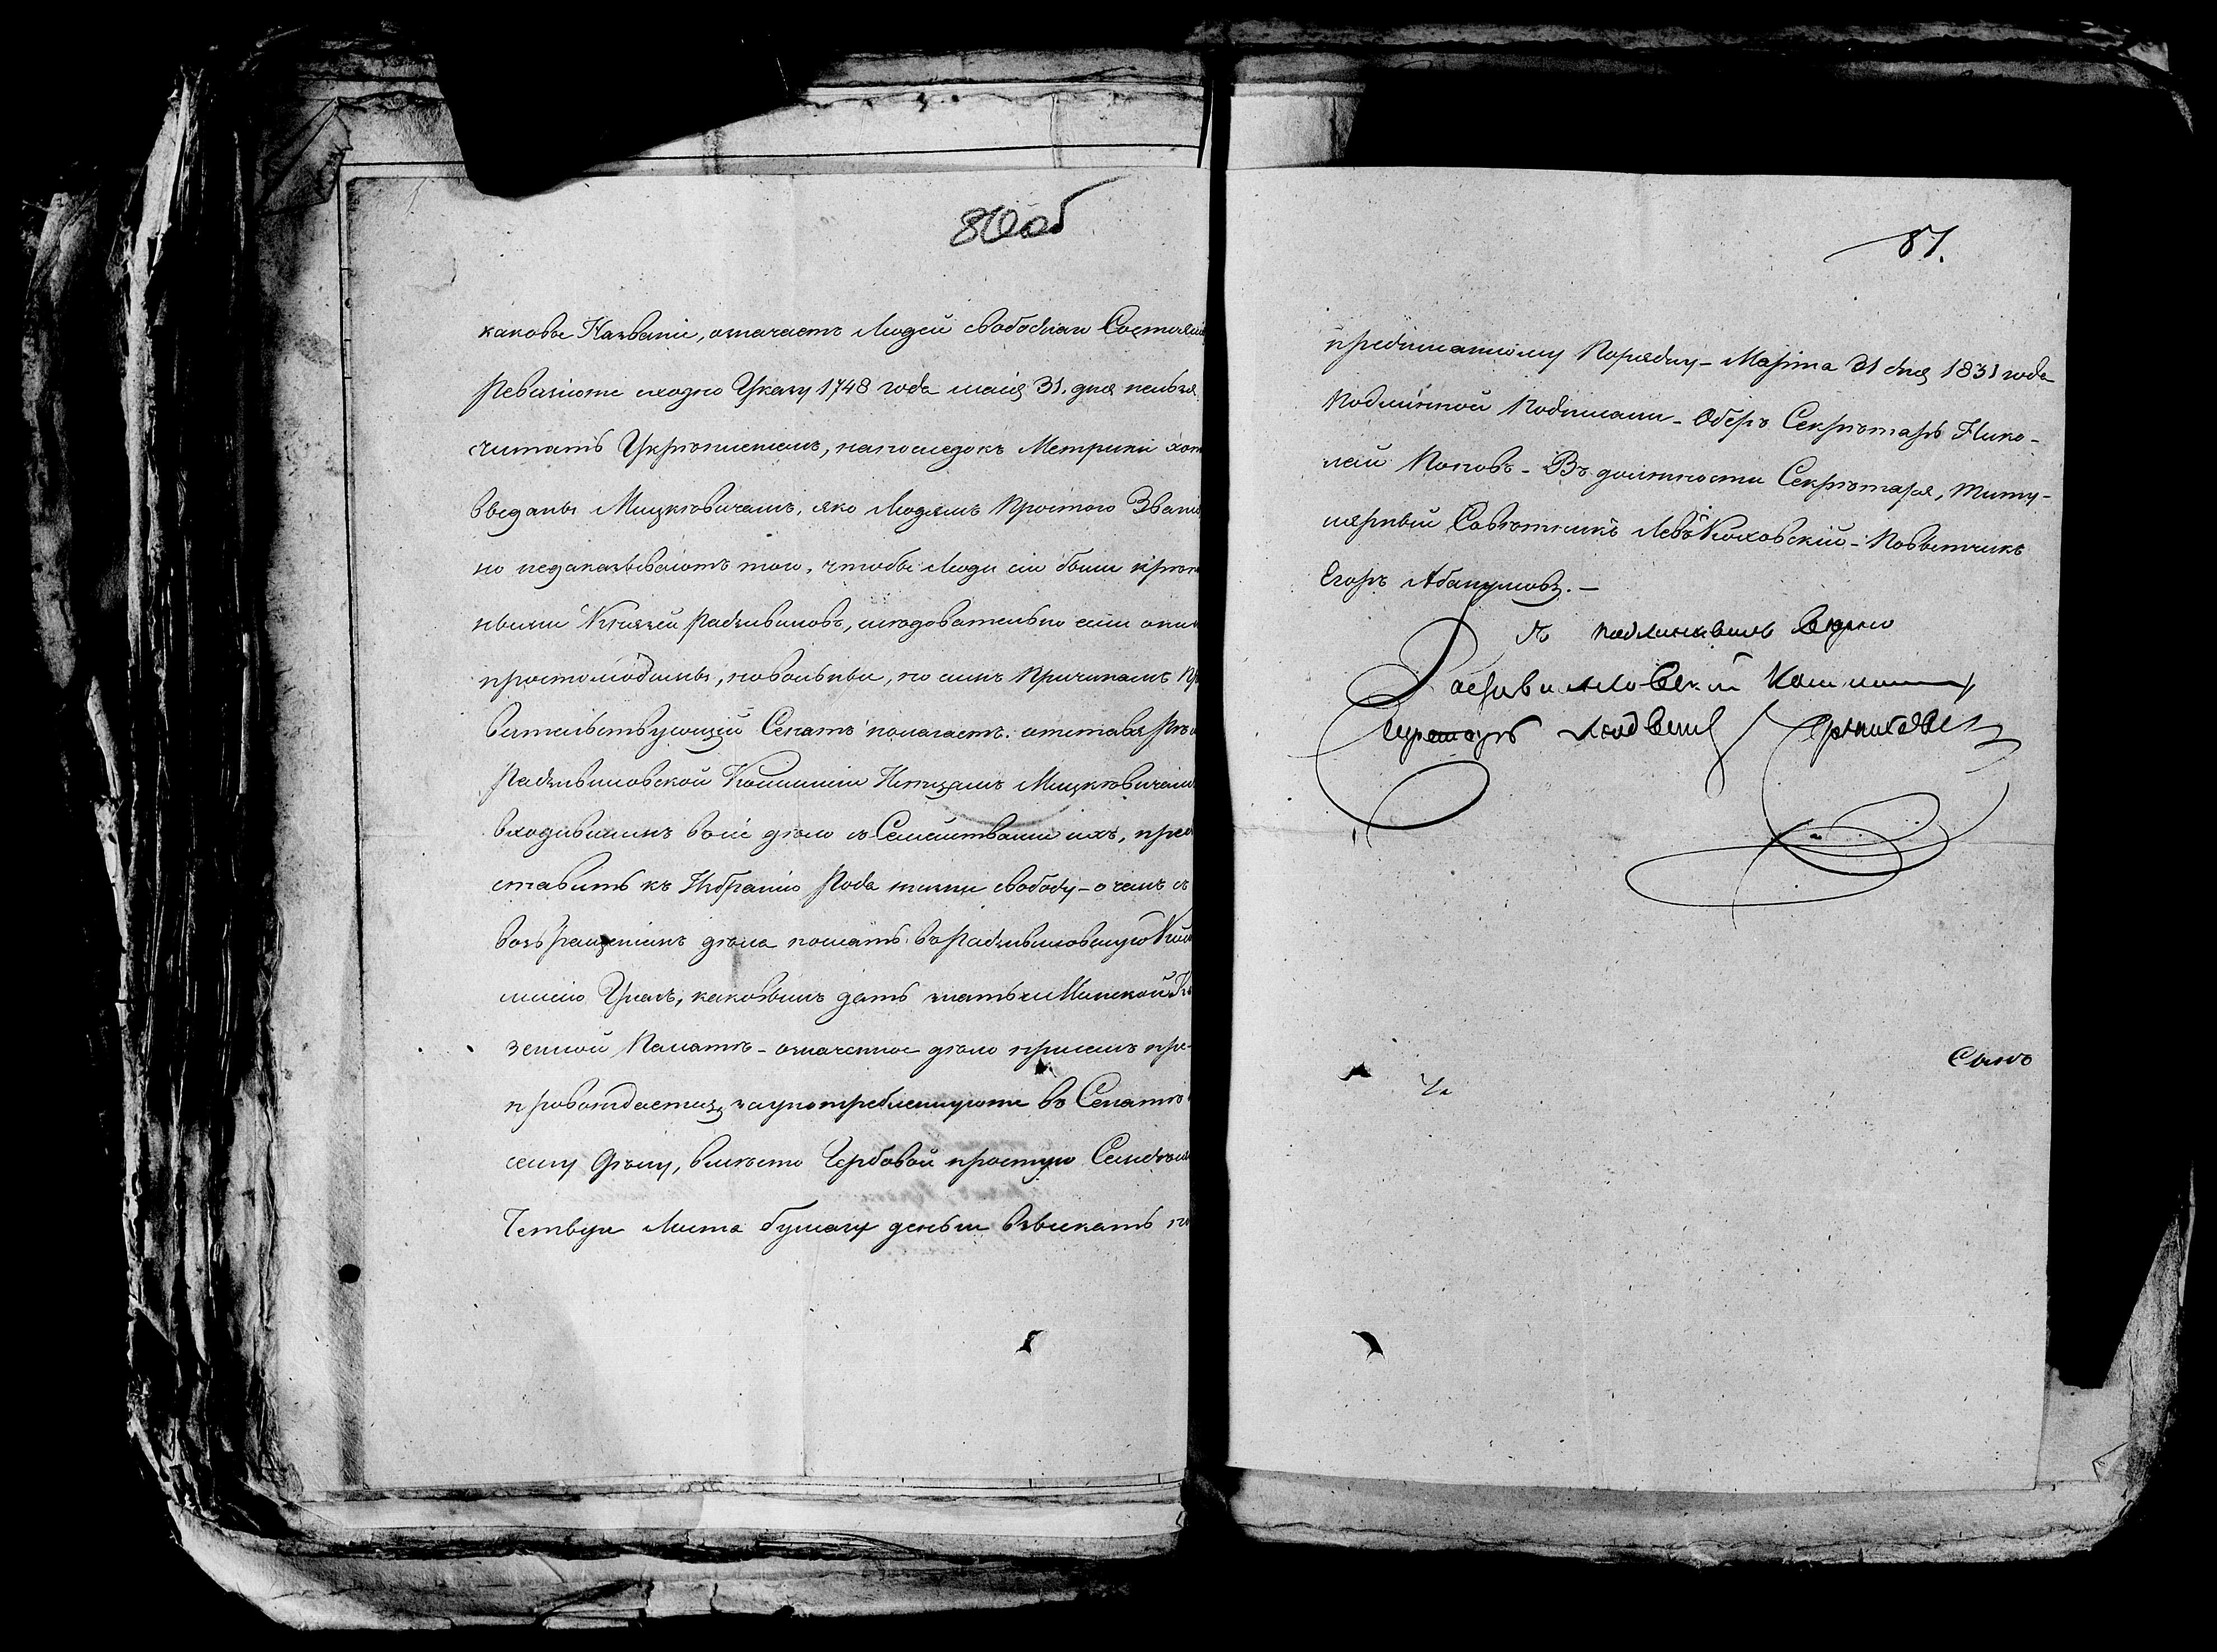 80 об
каковые Названiи, означаетъ Людей свободнаго Состоянi
Ревизiоте сходно Указу 1748 года маiя 31. дня нельзя
считать Укрѣпленiемъ, напоследокъ Метрики хот
введаны Мицкевичамъ, яко Людямъ Простого Званi
но недаказываютъ того, чтобы Люди сiи были крѣп
ными Князей Радзивиловъ, следовательно если они
простолюдины, но вольныи, по симъ Причинамъ Пр
вительствующiй Сенатъ полагаетъ: отставя Рѣ
Радзивиловской Коммисiи Истцамъ Мицкевичамъ
входившимъ в сiе дѣло и Семействами ихъ, пред
ставить къ Избранiю Рода жизни свободу – о чемъ съ
возвращенiемъ дѣла послать в Радзивиловскую Ком
мисiю Указъ, каковымъ дать знать и Минской Ка
зенной Палатѣ – означенное дѣло присемъ пре-
провождается, за употребленную въ Сенатѣ
сему Дѣлу, вмѣсто Гербовой простую
Листа бумагу деньги взыскать по
81.
предписанному Порядку – Марта 31 дня 1831 года
Подлинной Подписали – Оберъ Секрѣтарь Нико-
лай Поповъ – Въ должности Секрѣтаря, Титу-
лярный Совѣтникъ Левъ Киховскiй – Повытчикъ
Егоръ Абакумовъ. –
Съ подлиннымъ Вѣрно
Радзивиловской Коммисiи
Секретарь